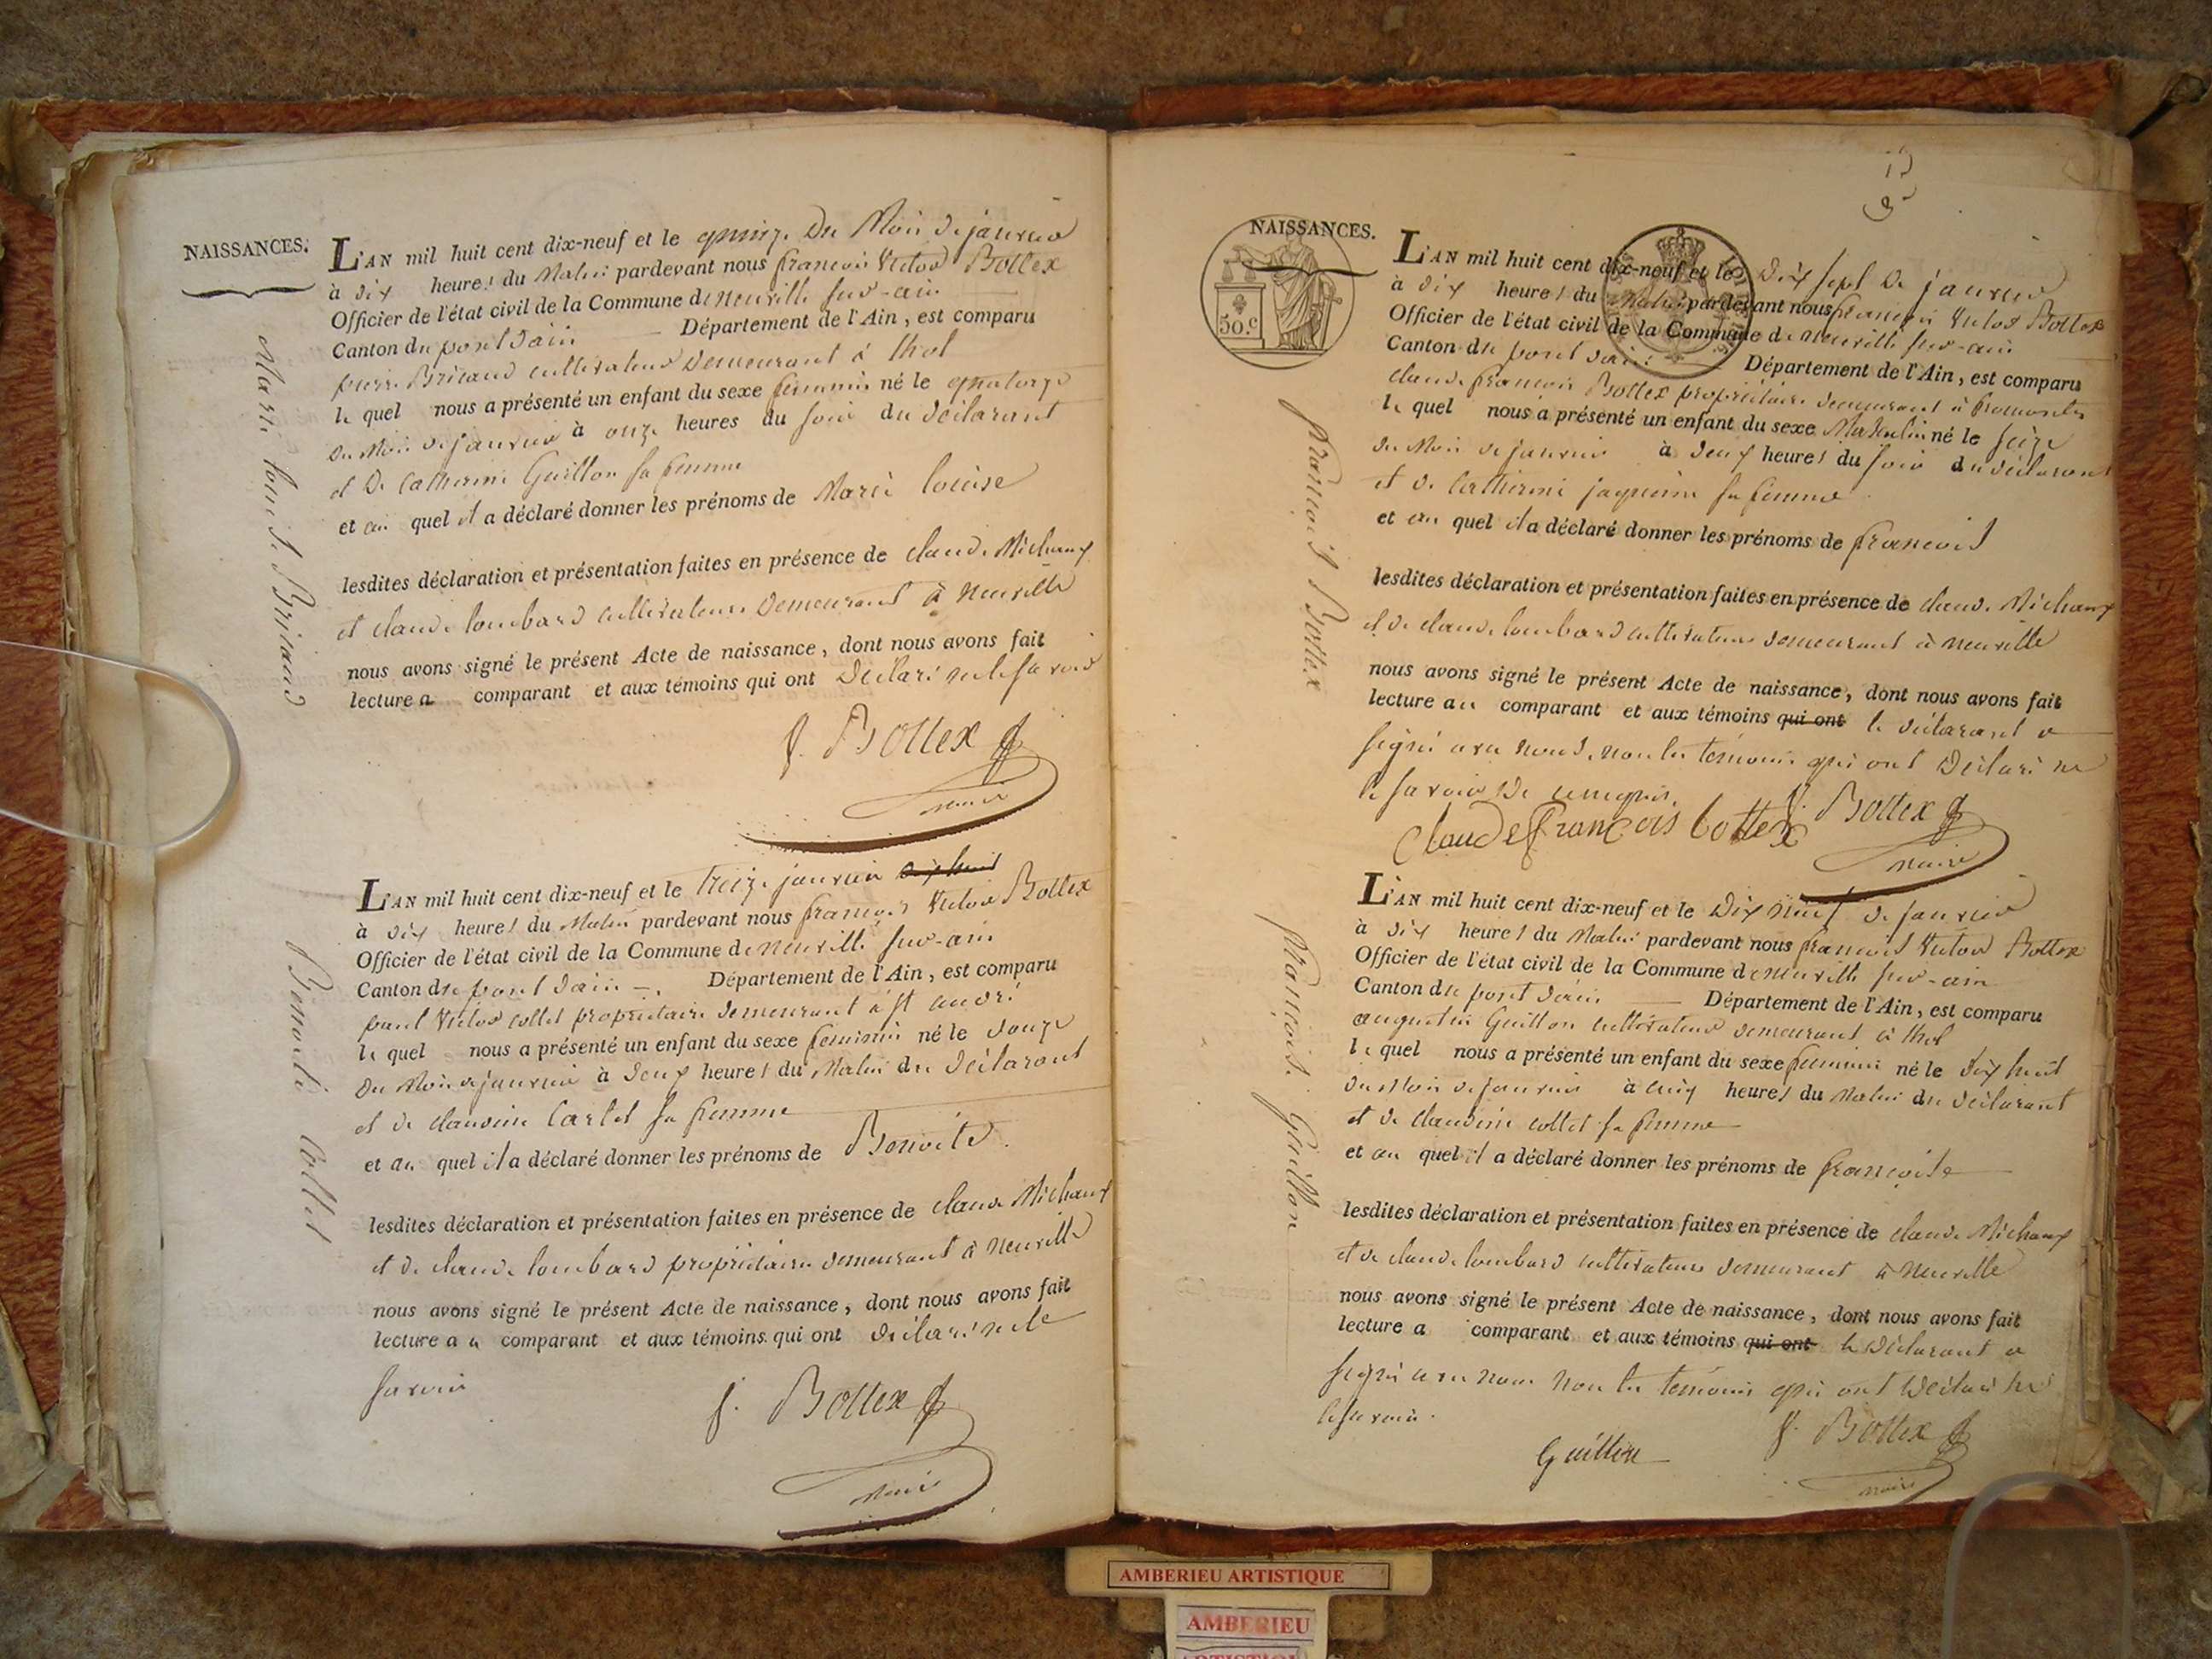 NAISSANCES.
Marie louise Briand
L'AN mil huit cent dix-neuf et le quinze du Mois de janvier
à dix heures du Matin pardevant nous francois Victor Bottex
Officier de l'état civil de la Commune de neuville sur-ain
Canton du pont dain Département de l'Ain, est comparu
pierre Briand cultivateur demeurant à thol
le quel nous a présenté un enfant du sexe feminin né le quatorze
du Mois de janvier à onze heures du soir du déclarant
et de Catherine Guillon sa femme
et au quel il a déclaré donner les prénoms de Marie louise
lesdites déclaration et présentation faites en présence de claude Michaux
et claude lombard cultivateurs demeurant à neuville
nous avons signé le présent Acte de naissance, dont nous avons fait
lecture a comparant et aux témoins qui ont déclaré ne le savoir
f. Bottex
maire
Benoite Collet
L'AN mil huit cent dix-neuf et le treize janvier dix huit
à dix heures du Matin pardevant nous francois Victor Bottex
Officier de l'état civil de la Commune de neuville sur-ain
Canton du pont dain Département de l'Ain, est comparu
paul Victor collet propriétaire demeurant à st andré
le quel nous a présenté un enfant du sexe feminin né le douze
du Mois de janvier à deux heures du Matin du déclarant
et de claudine Carlet sa femme
et au quel il a déclaré donner les prénoms de Benoite
lesdites déclaration et présentation faites en présence de claude Michaux
et de claude lombard propriétaires demeurant à neuville
nous avons signé le présent Acte de naissance, dont nous avons fait
lecture au comparant et aux témoins qui ont déclaré ne le
savoir
f. Bottex
maire
NAISSANCES.
50.c
francois Bottex
L'AN mil huit cent dix-neuf et le dix sept de janvier
à dix heures du Matin pardevant nous francois Victor Bottex
Officier de l'état civil de la Commune de neuville sur-ain
Canton du pont dain Département de l'Ain, est comparu
claude francois Bottex propriétaire demeurant à fromentes
le quel nous a présenté un enfant du sexe Masculin né le seize
du Mois de janvier à deux heures du soir du déclarant
et de Catherine jaquemin sa femme
et au quel il a déclaré donner les prénoms de francois
lesdites déclaration et présentation faites en présence de claude Michaux
et de claude lombard cultivateurs demeurant à neuville
nous avons signé le présent Acte de naissance, dont nous avons fait
lecture au comparant et aux témoins qui ont le déclarant a
signé avec nous, non les témoins qui ont déclaré ne
le savoir de ce requis.
claude françois bottex f. Bottex
maire
francoise Guillon
L'AN mil huit cent dix-neuf et le dix neuf de janvier
à dix heures du Matin pardevant nous francois Victor Bottex
Officier de l'état civil de la Commune de neuville sur-ain
Canton du pont dain Département de l'Ain, est comparu
augustin Guillon cultivateur demeurant à thol
le quel nous a présenté un enfant du sexe feminin né le dix huit
du Mois de janvier à cinq heures du Matin du déclarant
et de claudine collet sa femme
et au quel il a déclaré donner les prénoms de francoise
lesdites déclaration et présentation faites en présence de claude Michaux
et de claude lombard cultivateurs demeurant à neuville
nous avons signé le présent Acte de naissance, dont nous avons fait
lecture a comparant et aux témoins qui ont le déclarant a
signé avec nous non les témoins qui ont déclaré ne
le savoir.
Guillon f. Bottex
maire
AMBERIEU ARTISTIQUE
AMBERIEU
ARTISTIQUE